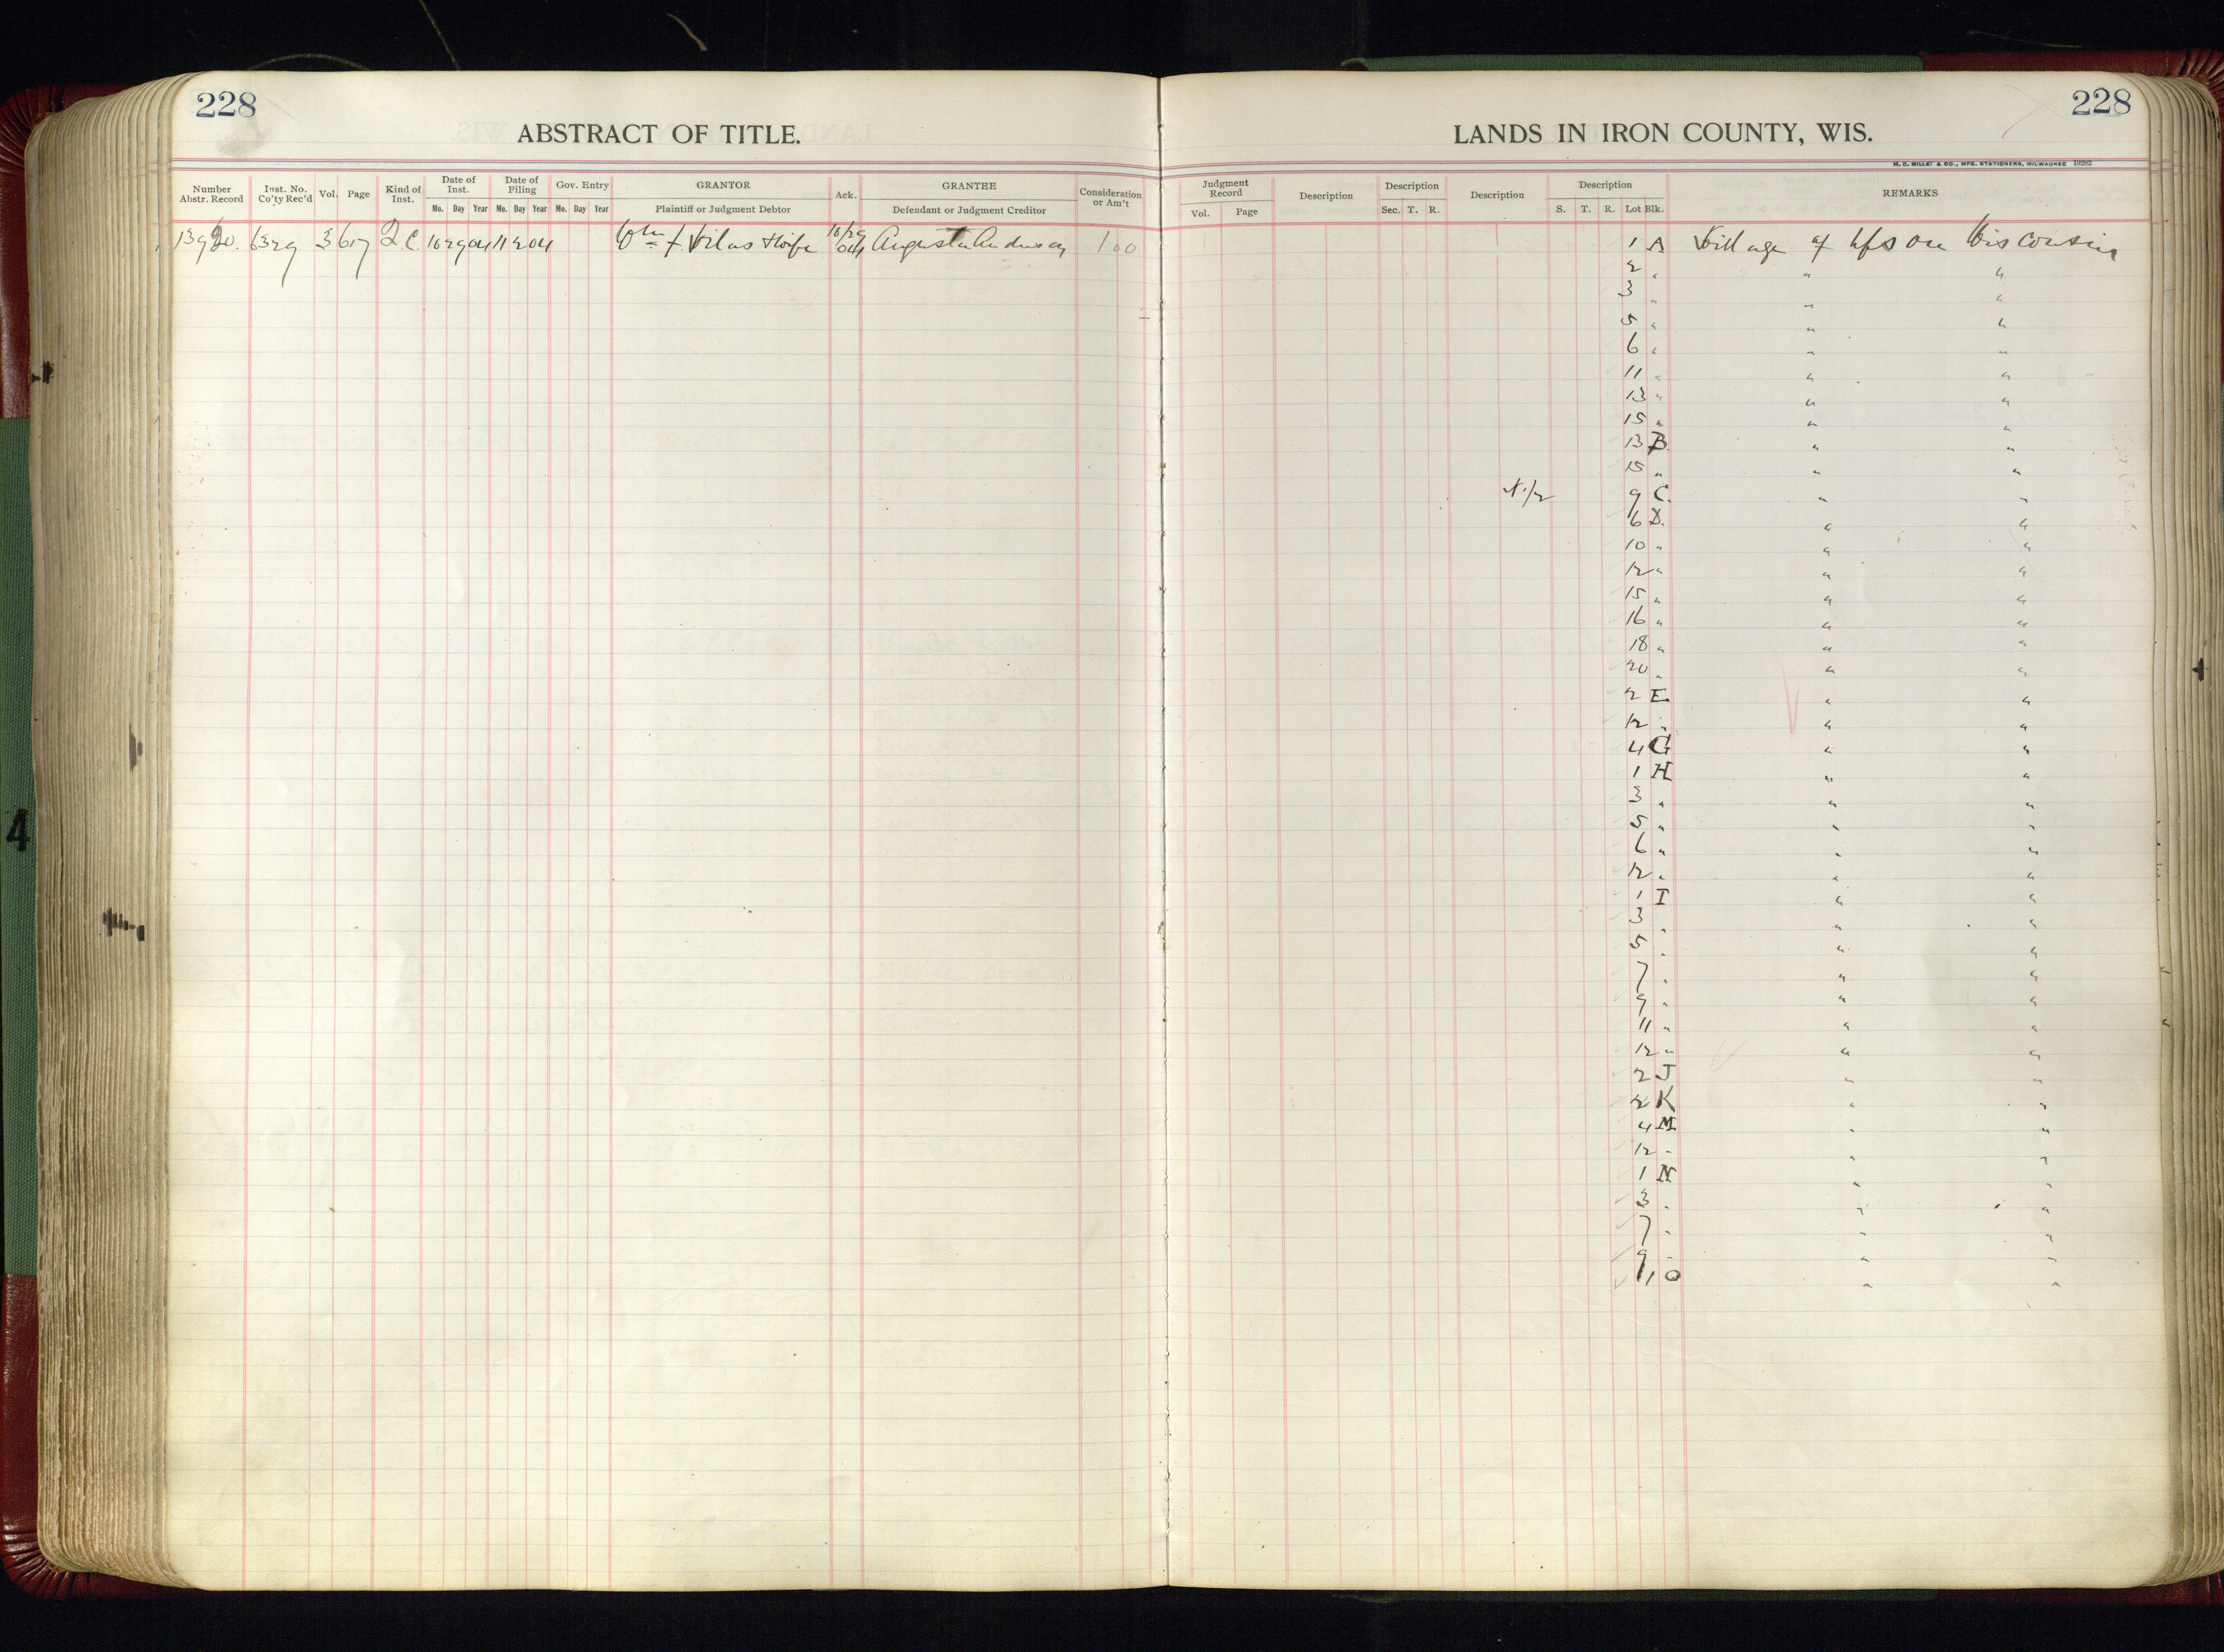 228
ABSTRACT OF TITLE.
Number Abstr. Record | Inst. No. Co'ty Rec'd | Vol. | Page | Kind of Inst. | Date of Inst. Mo. Day Year | Date of Filing Mo. Day Year | Gov. Entry Mo. Day Year | GRANTOR Plaintiff or Judgment Debtor | Ack. | GRANTEE Defendant or Judgment Creditor | Consideration or Am't
13920. 6329 3 617 Q.C. 10 29 04 11 2 04 Wm F. Vilas & Wife 10/29 04 Augusta Anderson 100
228
LANDS IN IRON COUNTY, WIS.
H. C. MILLER & CO., MFG. STATIONERS, MILWAUKEE 19282
Judgment Record Vol. Page | Description | Description Sec. T. R. | Description | Description S. T. R. Lot Blk. | REMARKS
1 A Village of Upson Wisconsin
2 " " "
3 " " "
5 " " "
6 " " "
11 " " "
13 " " "
15 " " "
13 B. " "
15 " " "
N 1/2 9 C. " "
6 D. " "
10 " " "
12 " " "
15 " " "
16 " " "
18 " " "
20 " " "
2 E " "
12 " " "
4 G " "
1 H " "
3 " " "
5 " " "
6 " " "
12 " " "
1 I " "
3 " " "
5 " " "
7 " " "
9 " " "
11 " " "
12 " " "
2 J " "
2 K " "
4 M " "
12 " " "
1 N " "
3 " " "
7 " " "
9 " " "
1 O " "